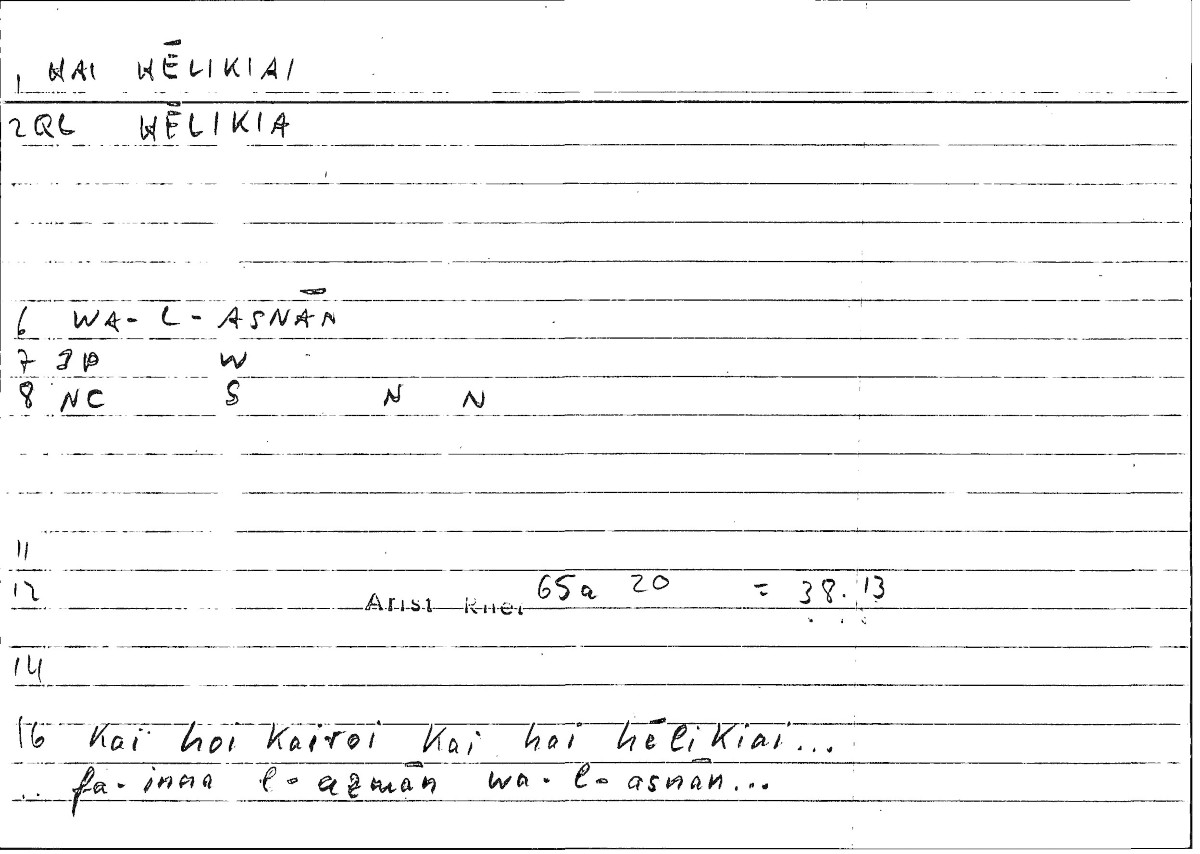 1 HAI HĒLIKIAI
2 QL HĒLIKIA
6 WA-L-ASNĀN
7 JP W
8 NC S N N
11
12 Arist Rhet 65a 20 = 38.13
14
16 Kai hoi Kairoi Kai hai hēlikiai...
.. fa-inna l-azmān wa-l-asnān...